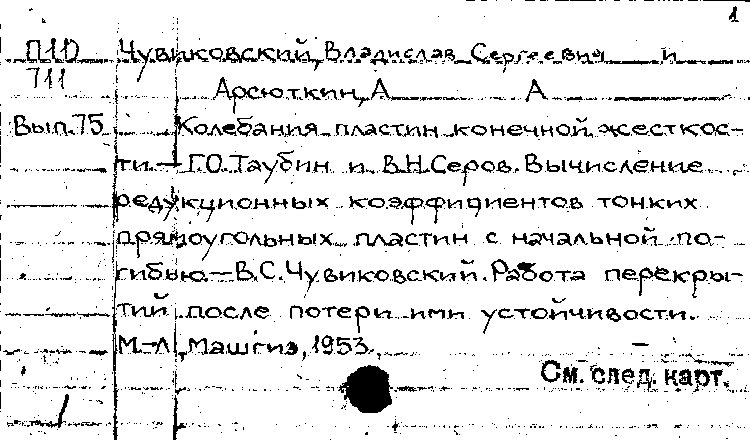 1
П1D Чувиковский, Владислав Сергеевич и
711 Арсюткин, А А
Вып. 75 Колебания пластин конечной жесткос-
ти. — Г.О. Таубин и В.Н. Серов. Вычисление
редукционных коэффициентов тонких
прямоугольных пластин с начальной по-
гибью. — В.С. Чувиковский. Работа перекры-
тий после потери ими устойчивости.
М.-Л., Машгиз, 1953.
См. след. карт.